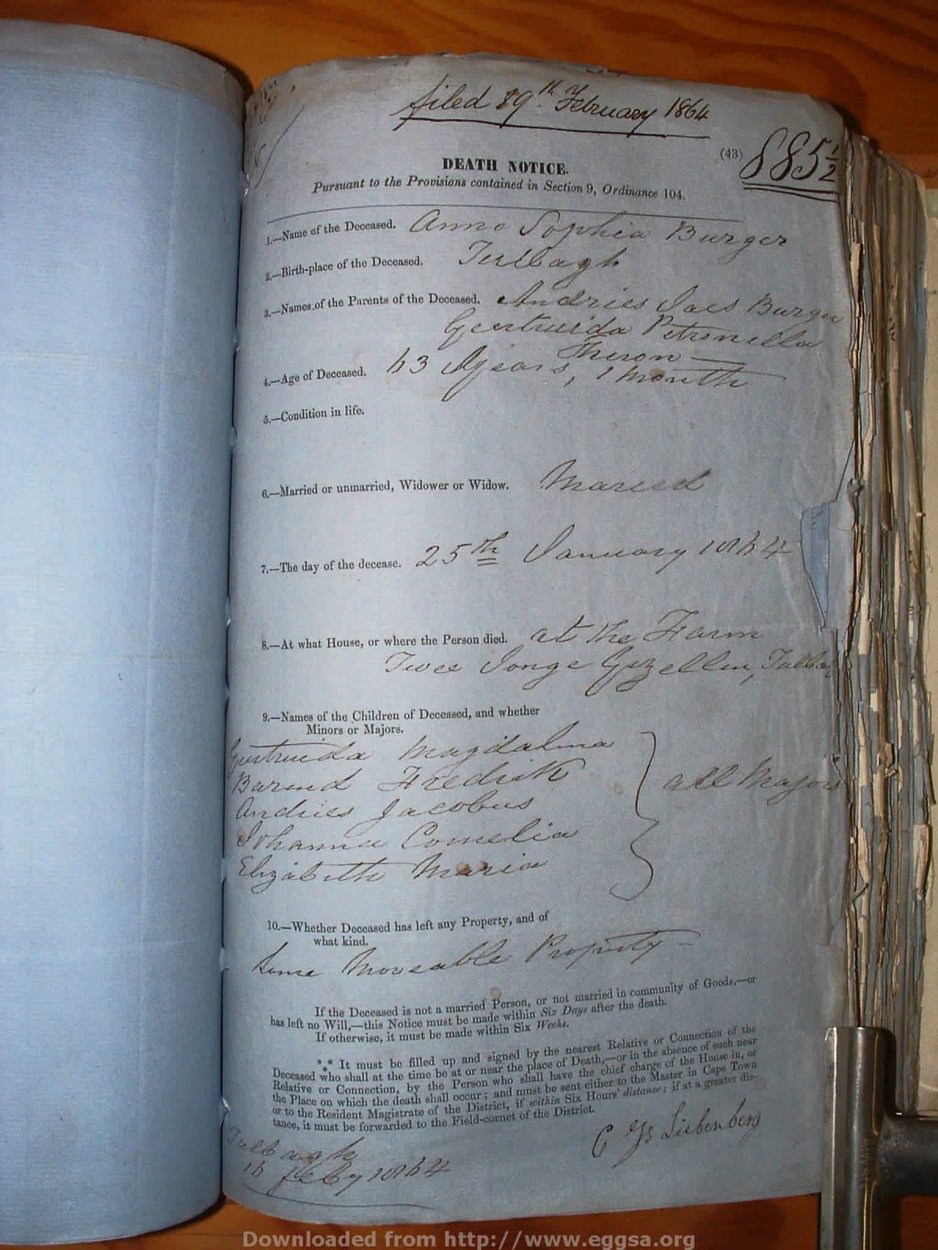 filed 29th February 1864
(43) 885½
DEATH NOTICE.
Pursuant to the Provisions contained in Section 9, Ordinance 104.
1.—Name of the Deceased. Anna Sophia Burger
2.—Birth-place of the Deceased. Tulbagh
3.—Names of the Parents of the Deceased. Andries Jacs Burger
Geertruida Petronella
Theron —
4.—Age of Deceased. 63 Years, 1 month
5.—Condition in life.
6.—Married or unmarried, Widower or Widow. Maried
7.—The day of the decease. 25th January 1864
8.—At what House, or where the Person died. at the Farm
Twee Jonge Gezellen, Tulbag
9.—Names of the Children of Deceased, and whether
Minors or Majors.
Gertruida Magdalena
Barend Fredrik
Andries Jacobus
Johanna Cornelia
Elizabeth Maria
all Majors
10.—Whether Deceased has left any Property, and of
what kind.
Some Moveable Property —
If the Deceased is not a married Person, or not married in community of Goods,—or
has left no Will,—this Notice must be made within Six Days after the death.
If otherwise, it must be made within Six Weeks.
*** It must be filled up and signed by the nearest Relative or Connection of the
Deceased who shall at the time be at or near the place of Death,—or in the absence of such near
Relative or Connection, by the Person who shall have the chief charge of the House in, or
the Place on which the death shall occur; and must be sent either to the Master in Cape Town
or to the Resident Magistrate of the District, if within Six Hours' distance; if at a greater dis-
tance, it must be forwarded to the Field-cornet of the District.
Liebenberg
Tulbagh
16 Feby 1864
Downloaded from http://www.eggsa.org